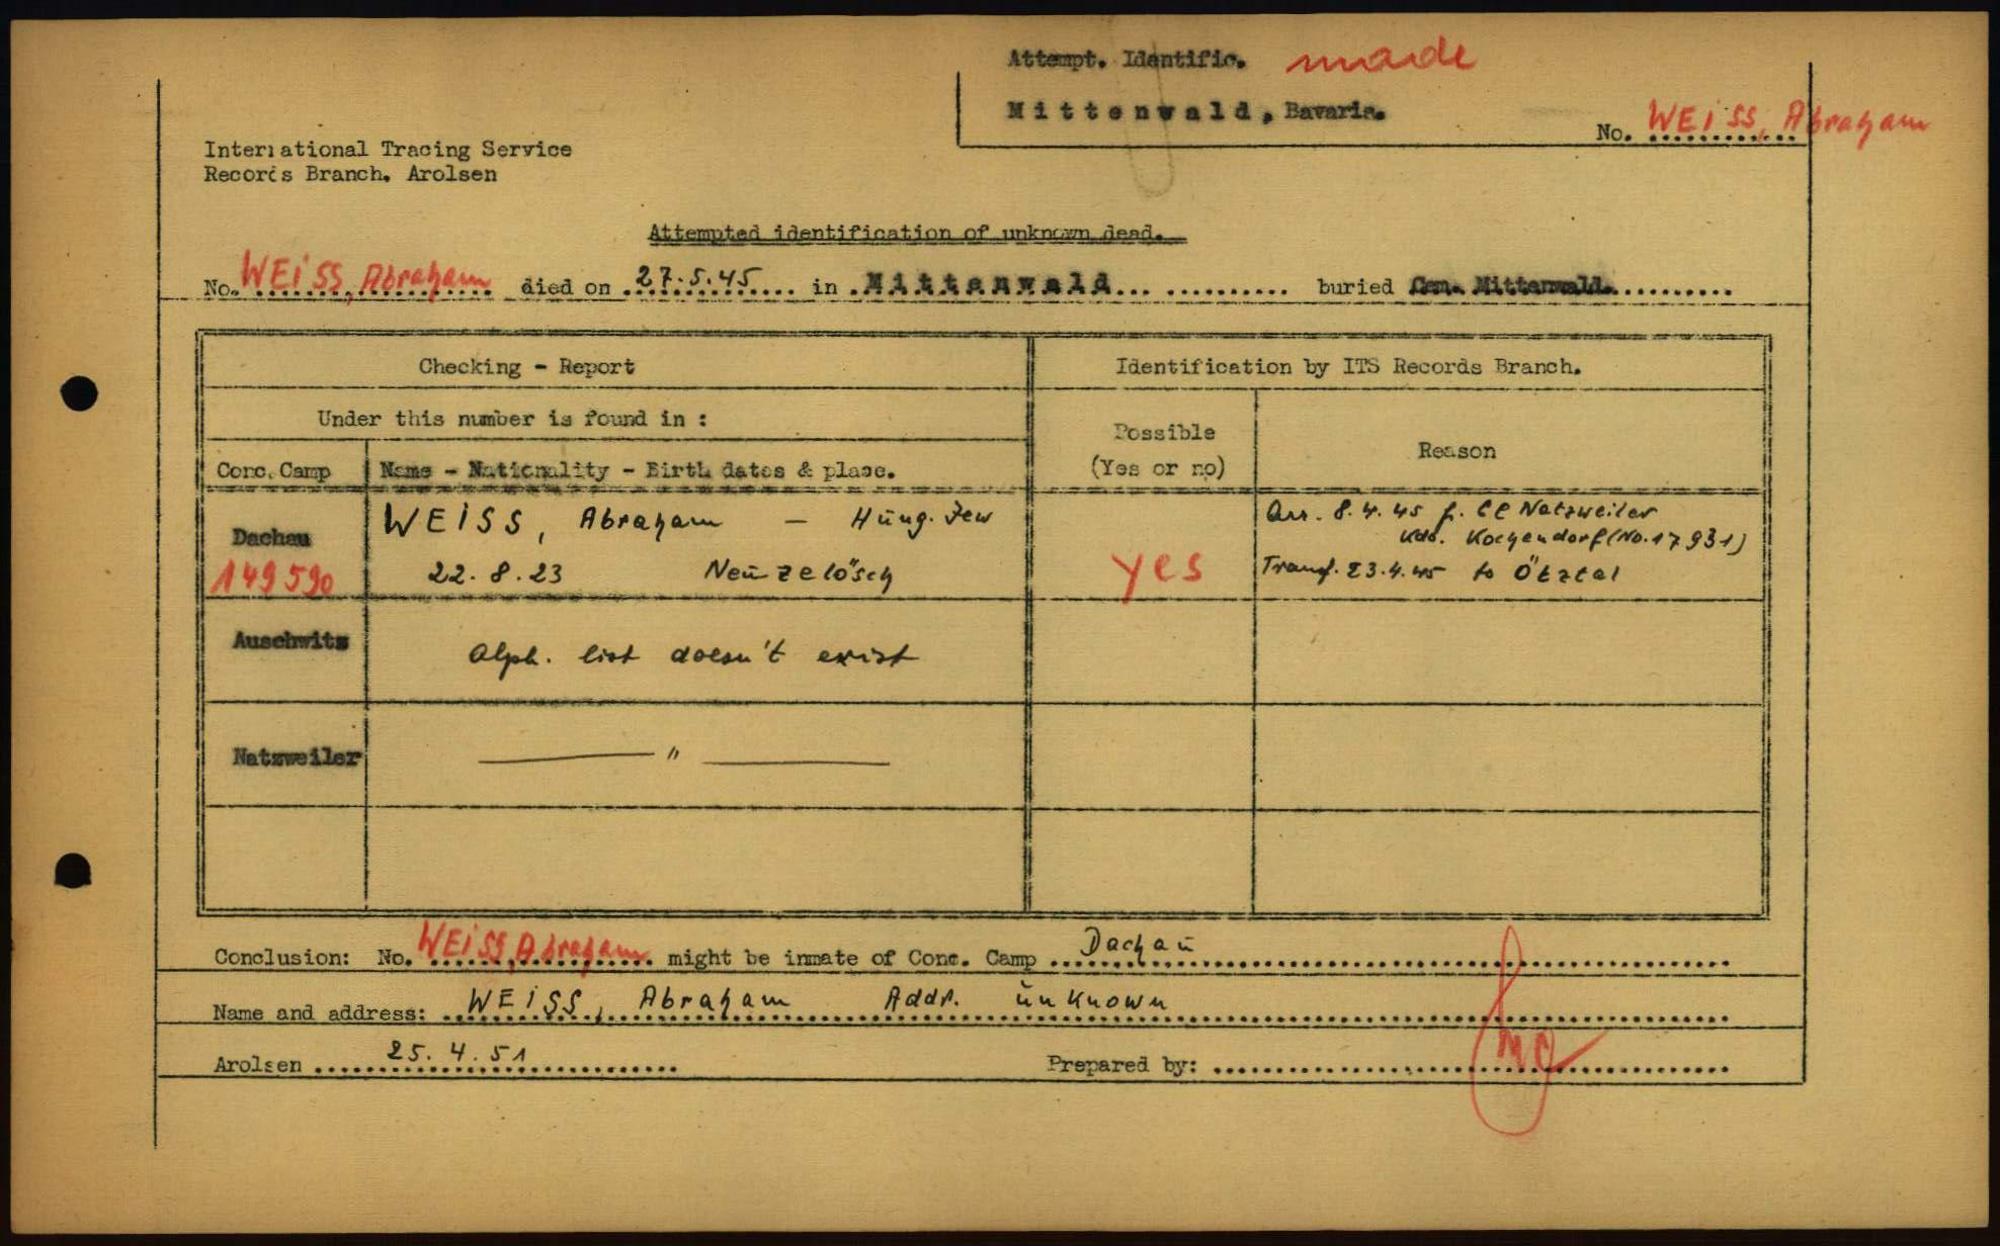 Attempt. Identific. made
Mittenwald, Bavaria.
No. WEISS, Abraham
International Tracing Service
Records Branch. Arolsen
Attempted identification of unknown dead.
No. WEISS, Abraham died on 27.5.45 in Mittenwald buried Cem. Mittenwald.
Checking - Report
Identification by ITS Records Branch.
Under this number is found in :
Possible
(Yes or no)
Reason
Conc. Camp
Name - Nationality - Birth dates & place.
Dachau
149590
WEISS, Abraham - Hung. Jew
22.8.23 Neuzelösch
yes
Arr. 8.4.45 f. CC Natzweiler
Kdo. Kochendorf (No. 17931)
Transf. 23.4.45 to Ötztal
Auschwitz
Alph. list doesn't exist
Natzweiler
——— " ———
Conclusion: No. WEISS, Abraham might be inmate of Conc. Camp Dachau
Name and address: WEISS, Abraham Addr. unknown
Arolsen 25.4.51
Prepared by: